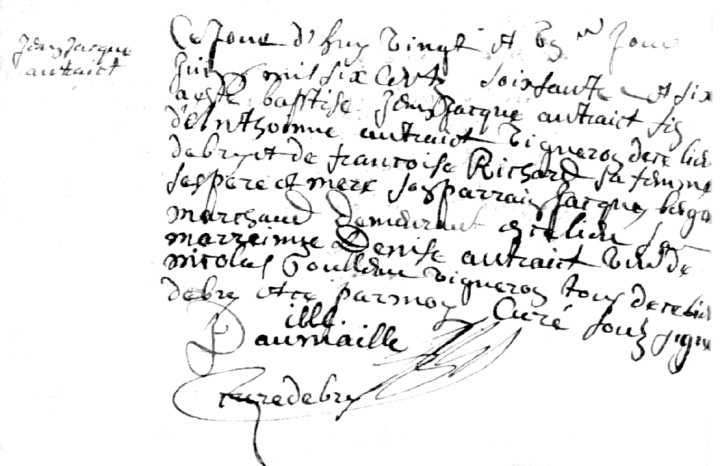 Jean Jacque
autraict
Ce Jour d'huy vingt et un^me Jour
Juin mil six Cents soixante et six
a esté baptise Jean Jacque autraict fiz
d'Anthoinne autraict vigneron de ce lieu
debry et de francoise Richard sa femme
ses pere et mere son parrain Jacque
marchand demeurant audit lieu sa
marreinne Denise autraict de
nicolas Goulleau vigneron tous de ce lieu
debry et ce par moy Curé soubz signe
ille
Daumaille
Cure debry